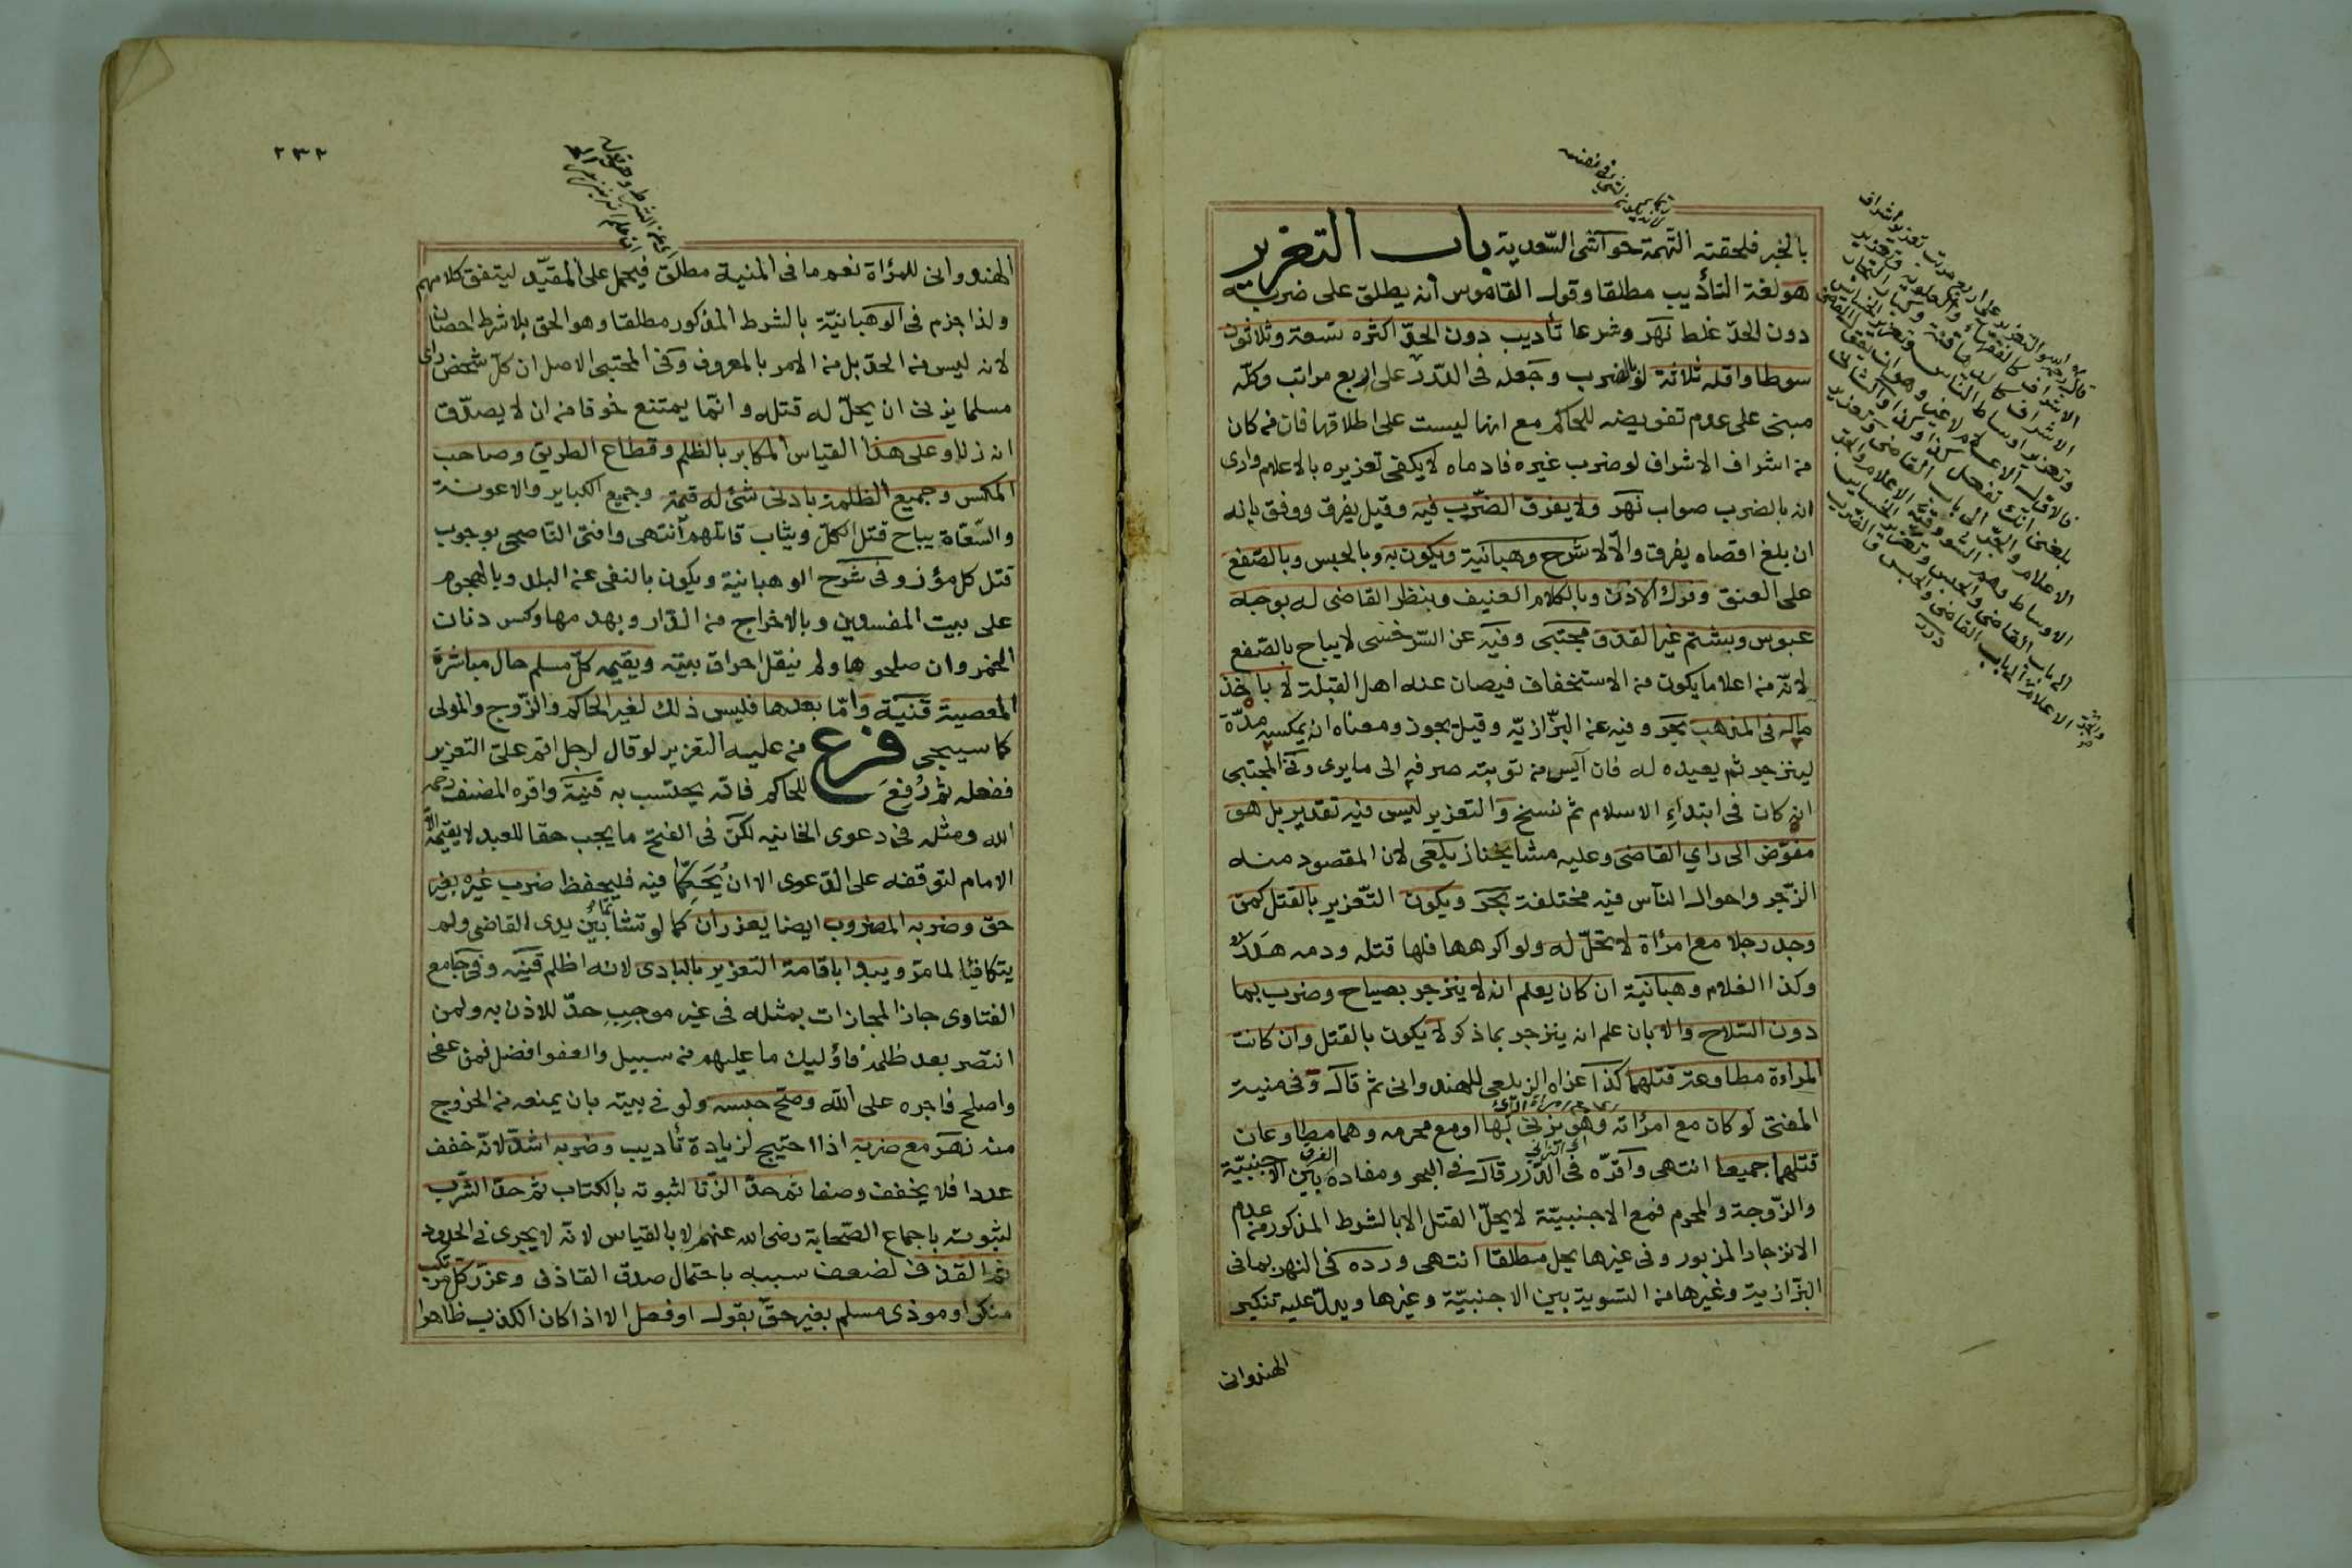 بالخبر فلحقته التهمة حواشى السّعدية باب التعزير
هو لغة التأديب مطلقا وقول القاموس أنه يطلق على ضربه
دون الحدّ غلط نهر وشرعا تأديب دون الحدّ اكثره تسعة وثلاثون
سوطا واقله ثلاثة لو بالضرب وجعله فى الدّرر على اربع مراتب وكلّه
مبنى على عدم تفويضه للحاكم مع انها ليست على اطلاقها فان من كان
من اشراف الاشراف لو ضرب غيره فادماه لا يكفى تعزيره بالاعلام وارى
انه بالضرب صواب نهر ولا يفرق الضّرب فيه وقيل يفرق ووفق بانه
ان بلغ اقصاه يفرق والّا لا شرح وهبانية ويكون به وبالحبس وبالصّفع
على العنق وفرك الاذن وبالكلام العنيف وبنظر القاضى له بوجه
عبوس وبشتم غير القذف مجتبى وفيه عن السّرخسى لا يباح بالصّفع
لانّه من اعلا ما يكون من الاستخفاف فيصان عنه اهل القبلة لا باخذ
ماله فى المذهب بحر وفيه عن البزّازيّه وقيل يجوز ومعناه ان يمكسه مدّة
لينزجر ثم يعيده له فان آيس من توبته صرفه الى ما يرى وفى المجتبى
انه كان فى ابتداء الاسلام ثم نسخ والتعزير ليس فيه تقدير بل هو
مفوّض الى راي القاضى وعليه مشايخنا زيلعى لان المقصود منه
الزّجر واحوال النّاس فيه مختلفة بحر ويكون التّعزير بالقتل كمن
وجد رجلا مع امرأة لا تحلّ له ولو اكرهها فلها قتله ودمه هدر
وكذا الغلام وهبانيّة ان كان يعلم انه لا ينزجر بصياح وضرب بما
دون السّلاح والا بان علم انه ينزجر بما ذكر لا يكون بالقتل وان كانت
المراءة مطاوعة قتلهما كذا عزاه الزيلعى للهندوانى ثم قال وفى منية
المفتى لو كان مع امرأته وهو يزنى بها او مع محرمه وهما مطاوعان
قتلهما جميعا انتهى واقرّه فى الدّرر قال فى البحر ومفاده الفرق بين الاجنبيّة
والزّوجة والمحرم فمع الاجنبيّة لا يحلّ القتل الا بالشرط المذكور من عدم
الانزجار المزبور وفى غيرها يحل مطلقا انتهى ورده فى النهر بما فى
البزّازية وغيرها من التسوية بين الاجنبيّة وغيرها ويدلّ عليه تنكير
الهندوانى
٢٣٢
الهندوانى للمرأة نعم ما فى المنية مطلق فيحمل على المقيّد ليتفق كلامهم
ولذا جزم فى الوهبانيّة بالشرط المذكور مطلقا وهو الحق بلا شرط احصان
لانه ليس من الحدّ بل من الامر بالمعروف وفى المجتبى الاصل ان كلّ شخص راى
مسلما يزنى ان يحلّ له قتله وانّما يمتنع خوفا من ان لا يصدّق
انه زنا وعلى هذا القياس المكابر بالظلم وقطاع الطريق وصاحب
المكس وجميع الظلمة بادنى شئ له قيمة وجميع الكباير والاعونة
والسّعاة يباح قتل الكلّ ويثاب قاتلهم انتهى وافتى النّاصحى بوجوب
قتل كل مؤذ وفى شرح الوهبانية ويكون بالنفى عن البلد وبالهجوم
على بيت المفسدين وبالاخراج من الدّار وبهدمها وكسر دنان
الخمر وان صلحوها ولم ينقل احراق بيته ويقيمه كلّ مسلم حال مباشرة
المعصية قنية وامّا بعدها فليس ذلك لغير الحاكم والزّوج والمولى
كما سيجى فرع من عليه التعزير لو قال لرجل اقم علىّ التعزير
ففعله ثم رُفع للحاكم فانّه يحتسب به قنية واقره المصنف رحمه
الله ومثله فى دعوى الخانيه لكن فى الفتح ما يجب حقا للعبد لا يقيمه الّا
الامام لتوقفه على الدّعوى الا ان يُحَكِّما فيه فليحفظ ضرب غيره بغير
حق وضربه المضروب ايضا يعزران كما لو تشاتما بين يدى القاضى ولم
يتكافئا لما مرّ ويبدا باقامة التعزير بالبادى لانه اظلم قنيه وفى جامع
الفتاوى جاز المجازات بمثله فى غير موجِبِ حدّ للاذن به ولمن
انتصر بعد ظلمه فأوليك ما عليهم من سبيل والعفو افضل فمن عفى
واصلح فاجره على الله وصحّ حبسه ولو فى بيته بان يمنعه من الخروج
منه نهر مع ضربه اذا احتيج لزيادة تأديب وضربه اشدّ لانّه خفف
عددا فلا يخفف وصفا ثم حدّ الزّنا لثبوته بالكتاب ثم حدّ الشّرب
لثبوته باجماع الصّحابة رضى الله عنهم لا بالقياس لانّه لا يجرى فى الحدود
ثم القذف لضعف سببه باحتمال صدق القاذف وعزّر كل مرتكب
منكر او موذى مسلم بغير حقّ بقول او فعل الا اذا كان الكذب ظاهرا